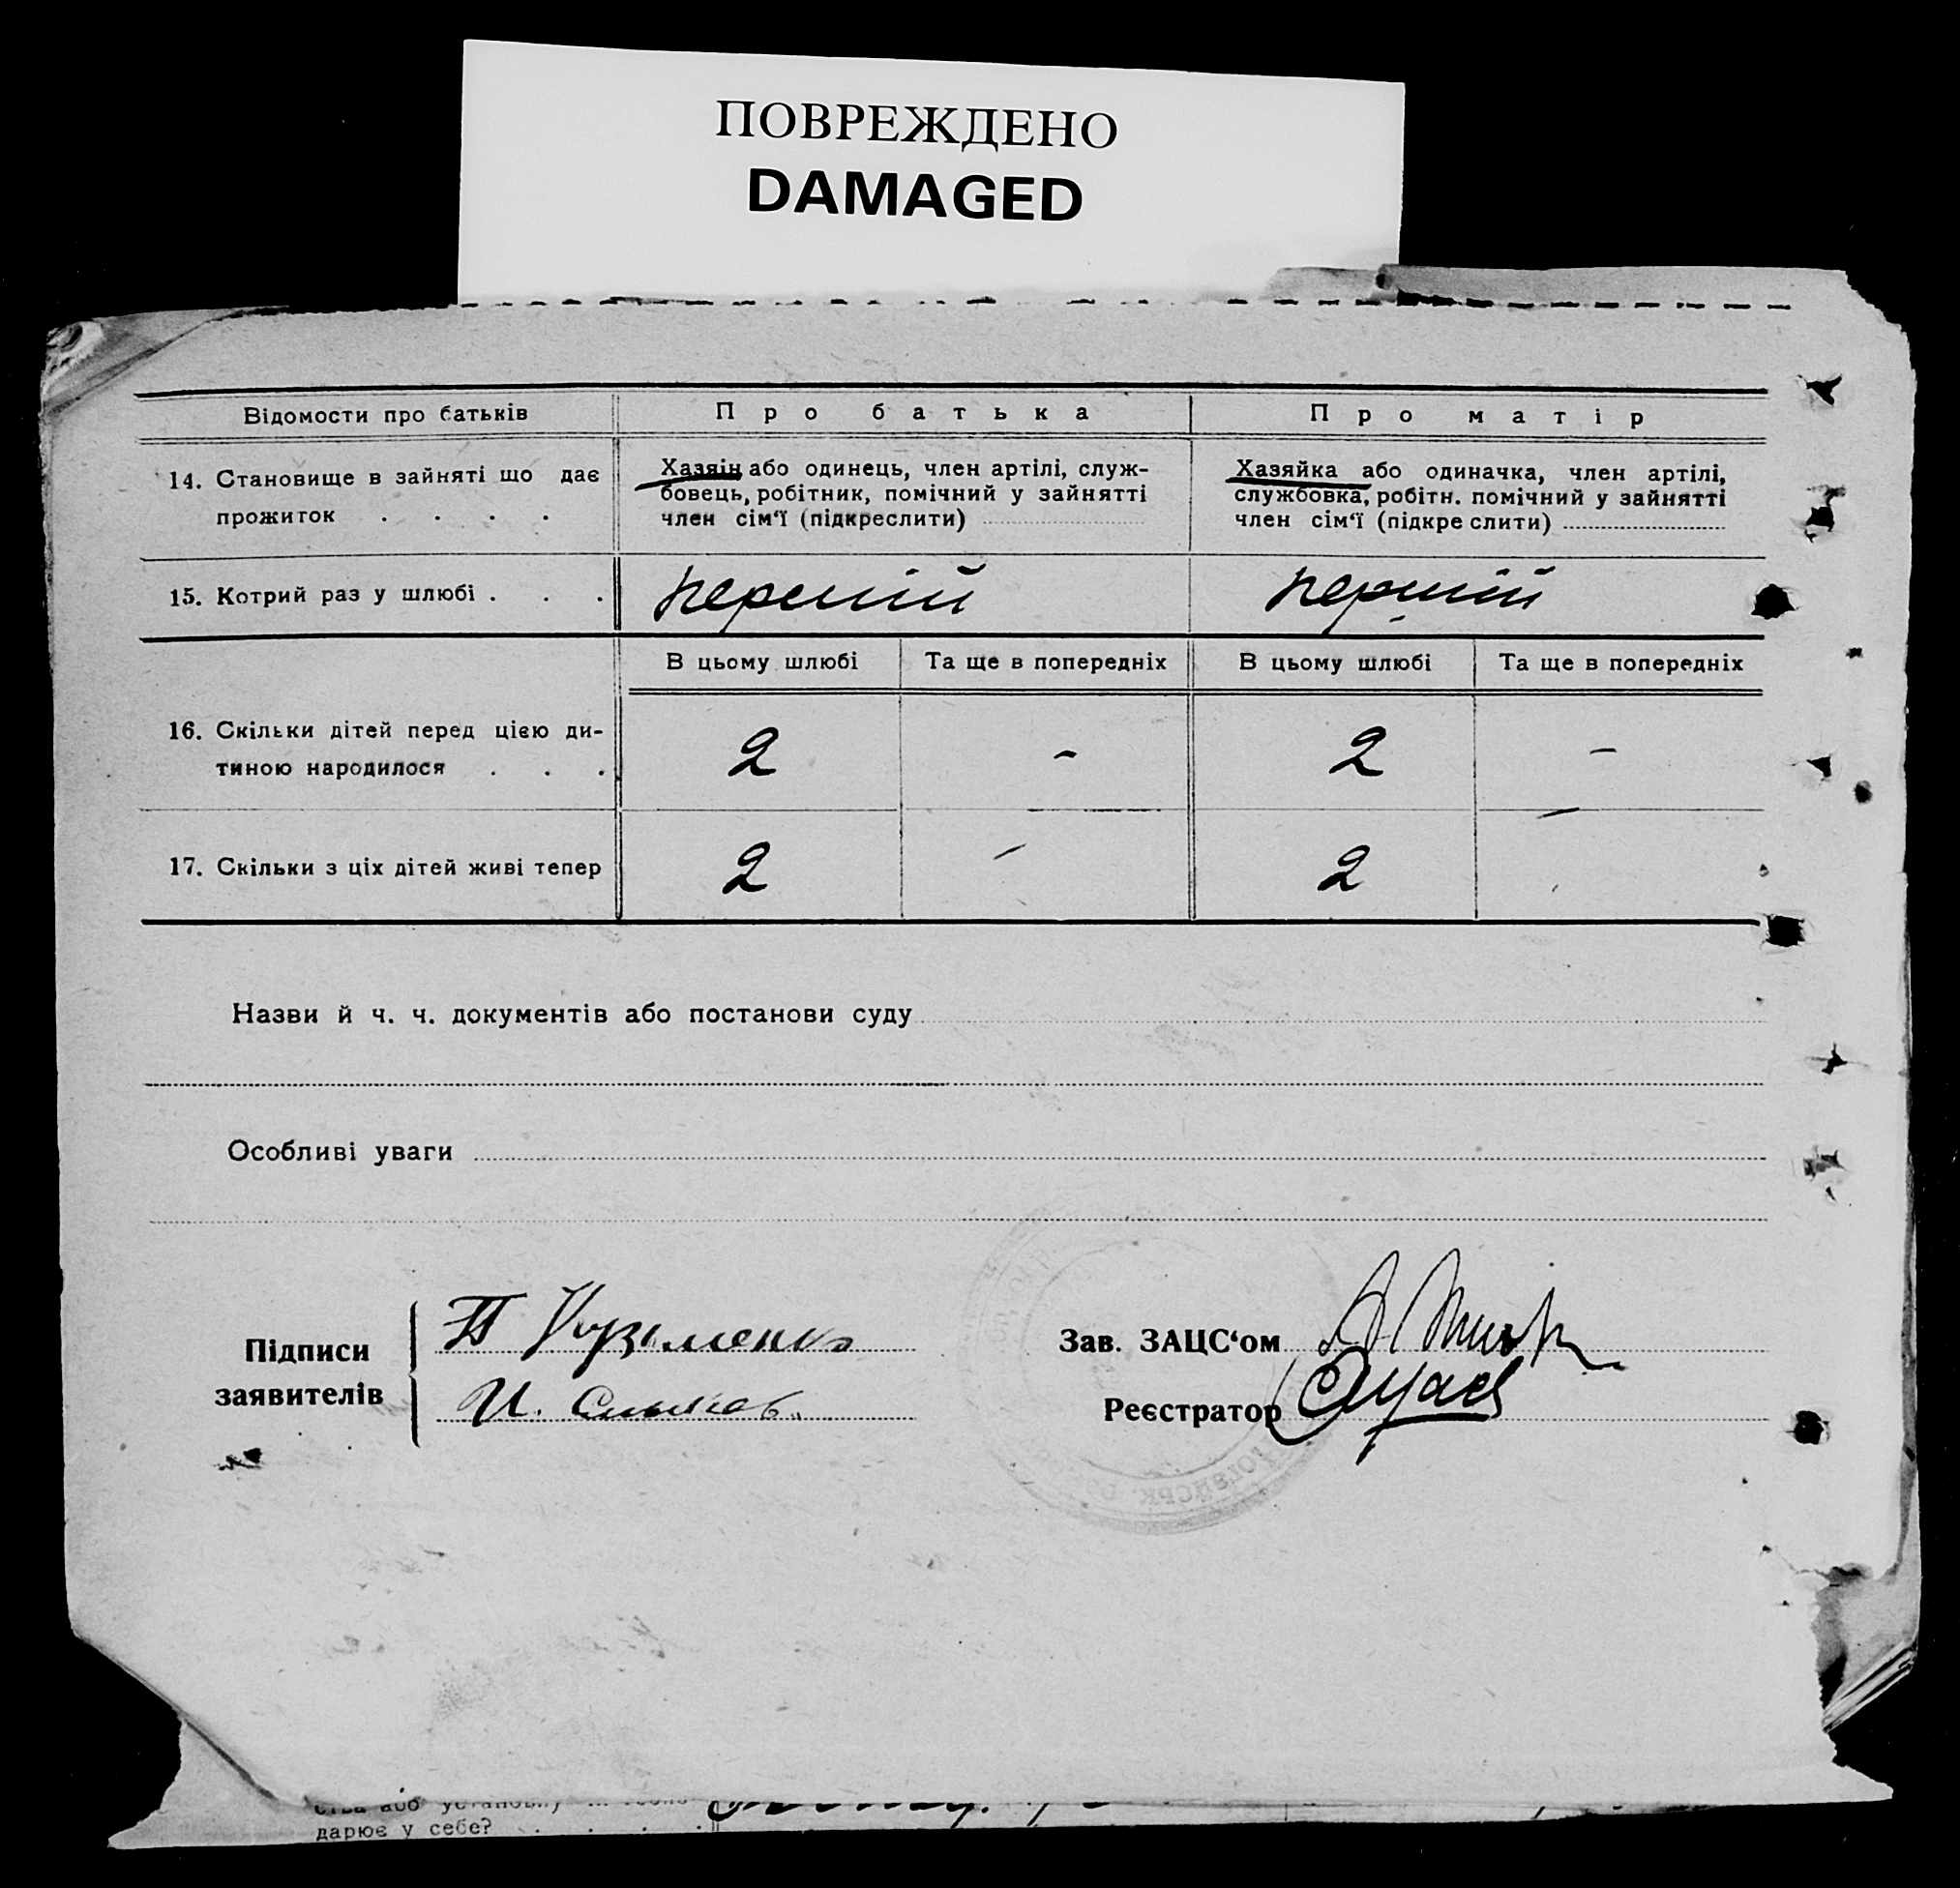 ПОВРЕЖДЕНО
DAMAGED
Відомости про батьків
Про батька
Про матір
14. Становище в зайняті що дає
прожиток . . . .
Хазяін або одинець, член артілі, служ-
бовець, робітник, помічний у зайнятті
член сім‘ї (підкреслити)
Хазяйка або одиначка, член артілі,
службовка, робітн. помічний у зайнятті
член сім‘ї (підкре слити)
15. Котрий раз у шлюбі . . .
перший
перший
В цьому шлюбі
Та ще в попередніх
В цьому шлюбі
Та ще в попередніх
16. Скільки дітей перед цією ди-
тиною народилося . . .
2
-
2
-
17. Скільки з ціх дітей живі тепер
2
-
2
Назви й ч. ч. документів або постанови суду
Особливі уваги
Підписи
заявителів
П Кузьменко
И.
Зав. ЗАЦС‘ом
Реєстратор
дарює у себе? . . . .